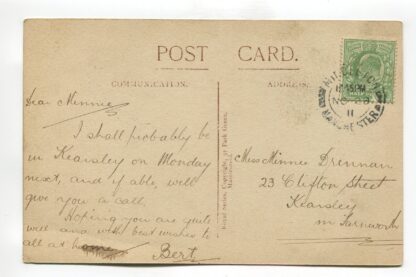 POST CARD.
COMMUNICATION.
ADDRESS.
Dear Minnie
I shall probably be
in Kearsley on Monday
next, and if able, will
give you a call.
Hoping you are quite
well and with best wishes to
all at home
Bert
Miss Minnie Drennan
23 Clifton Street
Kearsley
nr Farnworth
MANCHESTER
11